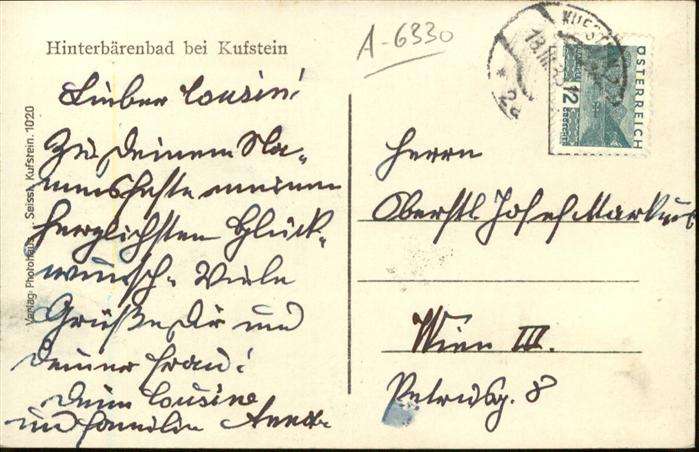 Hinterbärenbad bei Kufstein
A-6330
Lieber Cousin!
Zu Deinem Na-
mensfeste meinen
herzlichsten Glück-
wunsch. Viele
Grüße Dir und
Deiner Frau!
Deine Cousine
und Familie Anna
Herrn
Oberstl. Josef Markus
Wien III.
Petrusg. 8
Verlag: Photohaus Seissl, Kufstein. 1020
KUFSTEIN
18.III.33
* 2a
ÖSTERREICH
12
GROSCHEN